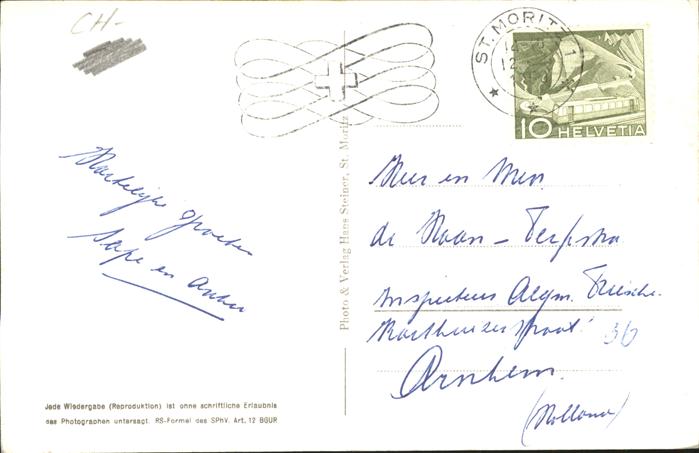 CH-
ST. MORITZ 1
12
10 HELVETIA
Hartelijke groeten
en
Photo & Verlag Hans Steiner, St. Moritz
Heer en Mevr.
de Haan - Terpstra
Inspecteur Algem.
Karthuizerstraat 36
Arnhem.
(Holland)
Jede Wiedergabe (Reproduktion) ist ohne schriftliche Erlaubnis
des Photographen untersagt. RS-Formel des SPhV. Art. 12 BGUR